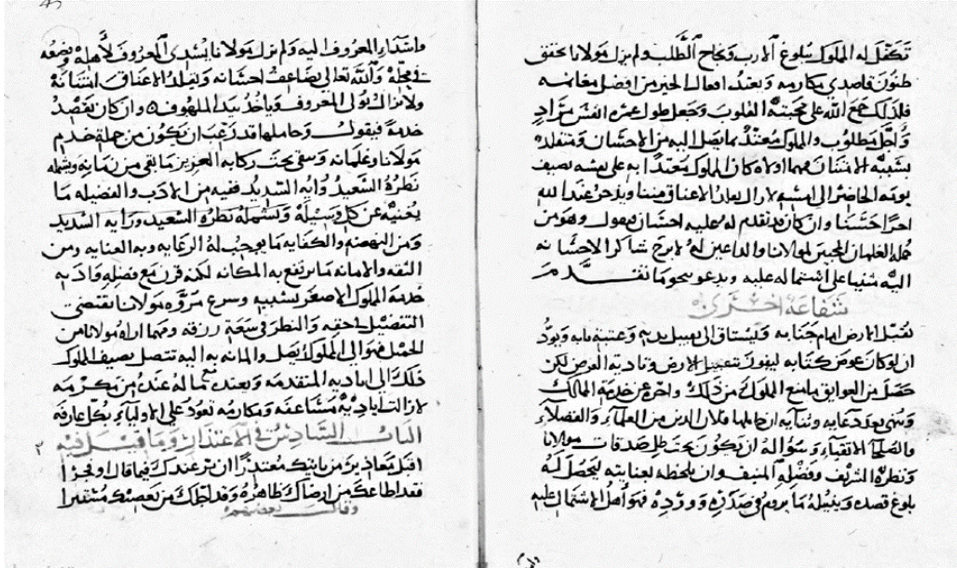 تكفل له المملوك ببلوغ الارب ونجاح الطلب ولم يزل مولانا يحقق
ظنون قاصدي مكارمه ويعتد افعال الخير من افضل مغانمه
فلذلك جمع الله على محبته القلوب وجعل طول عمره اقصى مراد
واجل مطلوب والمملوك معتد بما يصل اليه من الاحسان ومتقلد
بسببه الامتنان فمهما اولاه كان المملوك معتدا به على نفسه يضيف
يومه الحاضر الى امسه لازال يقلد الاعناق مننا ويدخر عند الله
اجرا حسنا وان كان يقدم له عليه احسان فيقول وهو من
جملة الغلمان المحبين لمولانا والداعين له لا يبرح شاكرا لاحسانه
اليه مثنيا على اشتماله عليه ويدعو بنحو ما تقدم
شفاعة اخرى
يقبل الارض امام جنابه ويشتاق الى تقبيل يديه وعتبة بابه ويود
ان لو كان عوض كتابه ليفوز بتقبيل الارض وتادية الفرض لكن
حصل من العوايق ما منع المملوك من ذلك واخره عن خدمة المالك
وينهي بعد دعايه وثنايه ان حاملها فلان الدين من العلماء والفضلاء
والصلحا الاتقياء وسؤاله ان يكون تحت ظل صدقات مولانا
ونظره الشريف وفضله المنيف وان يلحظه بعنايته ليحصل له
بلوغ قصده وينيله ما يروم في صدره وورده فهو اهل الاشتمال عليه
واسداء المعروف اليه ولم يزل مولانا يسدي المعروف لاهله ويضعه
في محله والله تعالى يضاعف احسانه ويقلد الاعناق امتنانه
ولا زال يولى المعروف وياخذ بيد الملهوف وان كان يقصد
خدمة فيقول وحاملها قد رغب ان يكون من جملة خدم
مولانا وغلمانه ويبقى تحت ركابه العزيز ما بقي من زمانه ويشمله
نظره السعيد ورايه السديد ففيه من الادب والفضيله ما
يغنيه عن كل وسيلة ويشمله نظره السعيد ورايه السديد
ومن النهضه والكفايه ما يوجب له الرعايه وبه العنايه ومن
الثقه والامانه ما يرتفع به المكانه لكنه قرن مع فضله وادبه
خدمة المملوك الاصغر بسببه وسرع مروة مولانا تقتضي
التفضيل لحقه والنظر في سعة رزقه ومهما اراه مولانا من
الجميل فهو الى المملوك يصل والمانه به اليه تتصل يضيف المملوك
ذلك الى اياديه المتقدمه ويعتد بما له عنده من مكرمه
لازالت اياديه مساعفه ومكارمه تعود على الاولياء بكل عارفه
الباب السادس في الاعتذار وما قيل فيه
اقبل معاذير من ياتيك معتذرا ان بر عندك فيما قال او فجرا
فقد اطاعك من ارضاك ظاهره وقد اجلك من يعصيك مستترا
وقال بعضهم